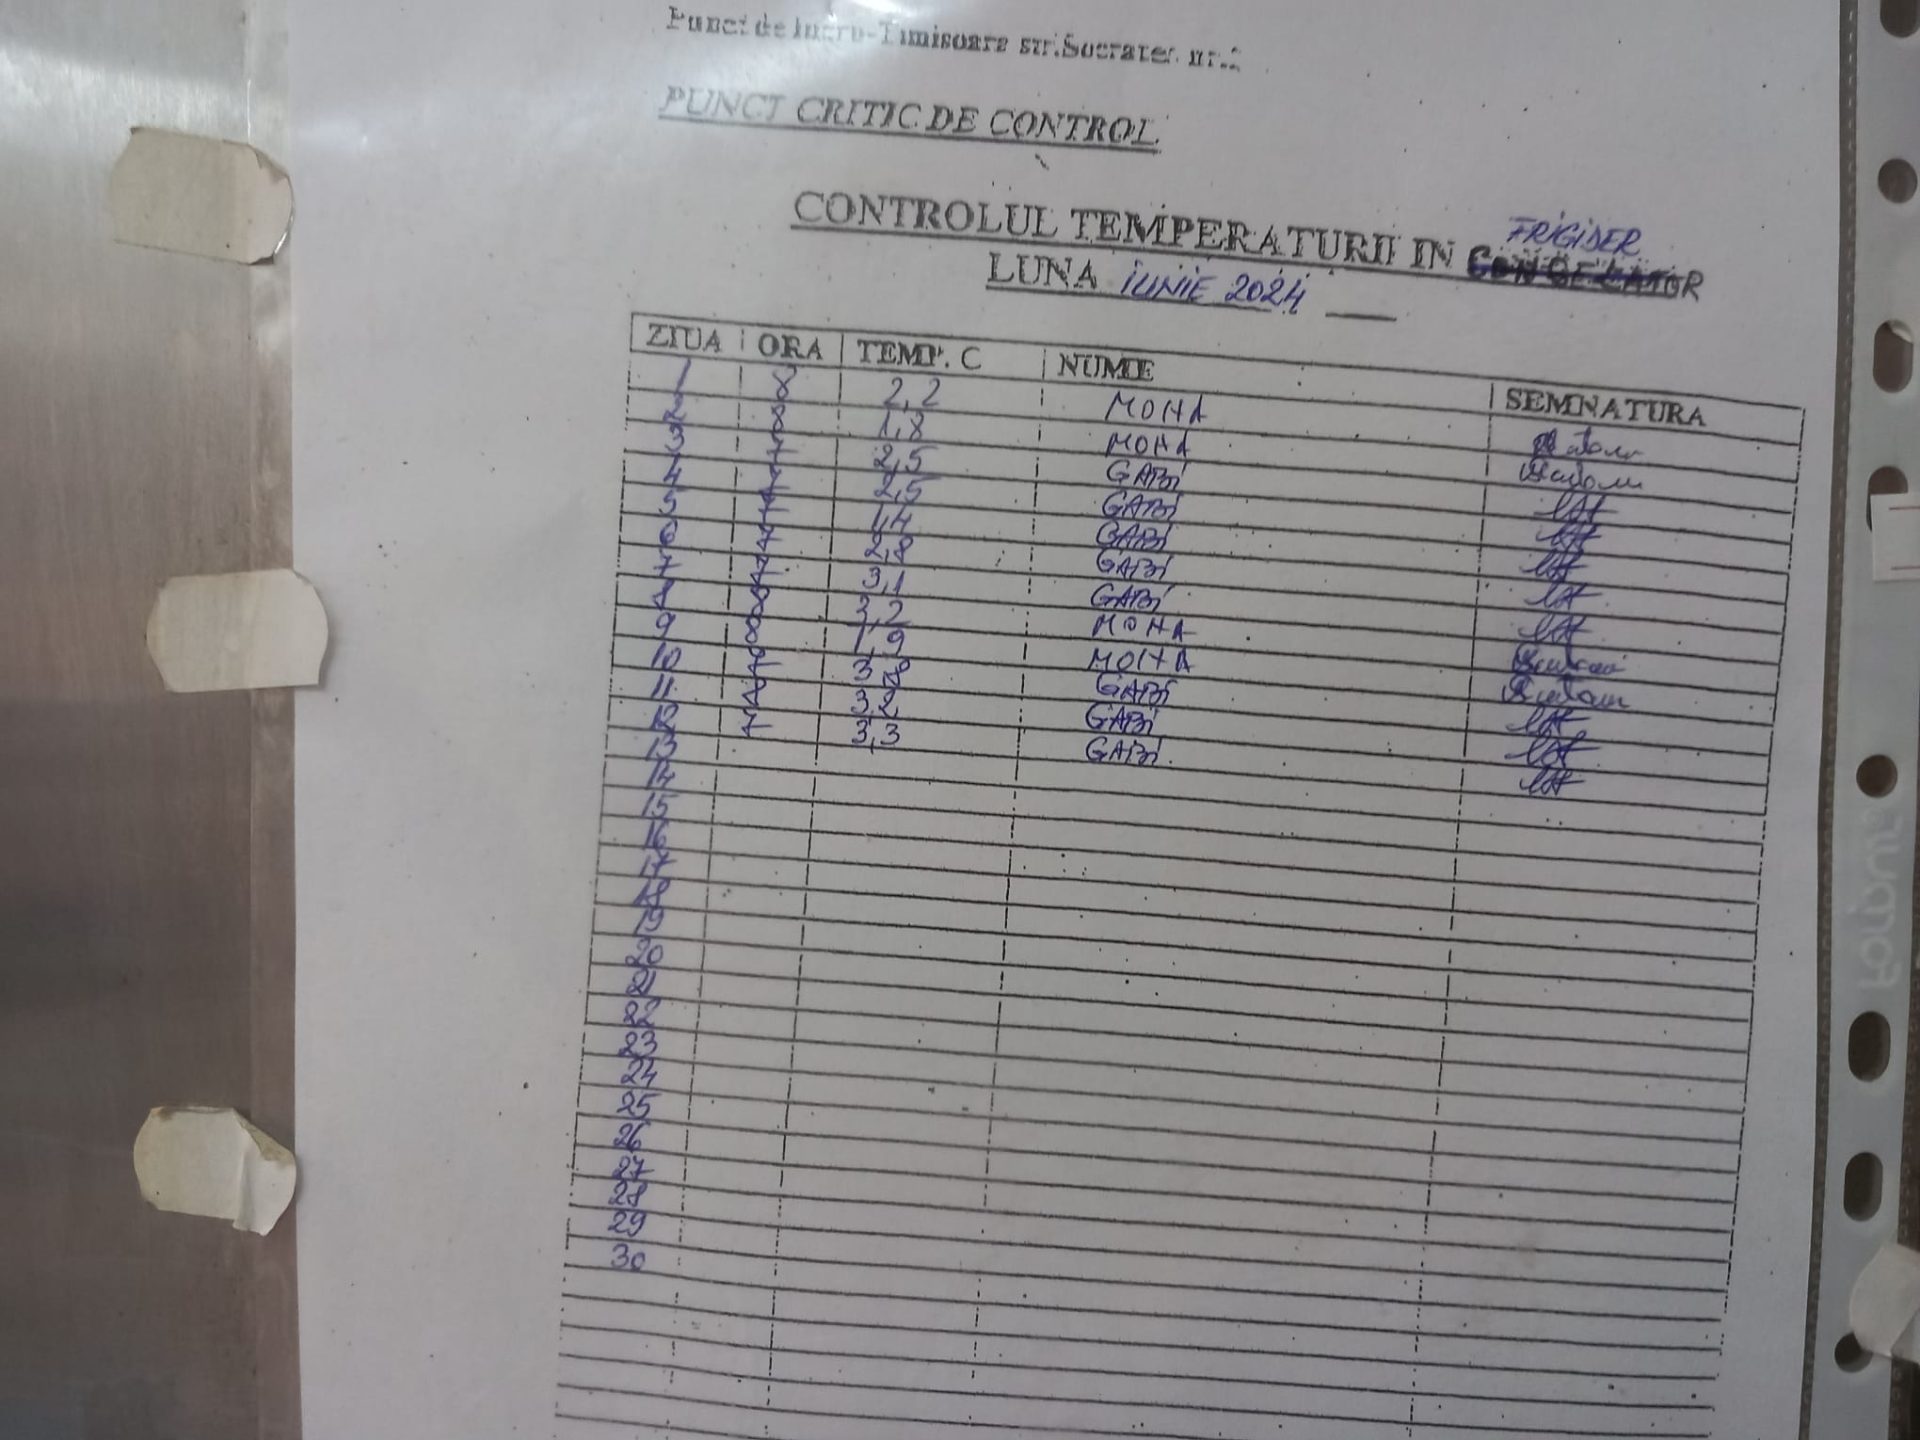 Punct de lucru-Timisoara str.Socrates nr.2
PUNCT CRITIC DE CONTROL
CONTROLUL TEMPERATURII IN FRIGIDER
LUNA IUNIE 2024
ZIUA ORA TEMP. C NUME SEMNATURA
1 8 2,2 MOHA
2 8 1,8 MOHA
3 7 2,5 GABI
4 7 2,5 GABI
5 7 1,4 GABI
6 7 2,8 GABI
7 7 3,1 GABI
8 8 3,2 MOHA
9 8 1,9 MOHA
10 7 3,8 GABI
11 7 3,2 GABI
12 7 3,3 GABI
13
14
15
16
17
18
19
20
21
22
23
24
25
26
27
28
29
30